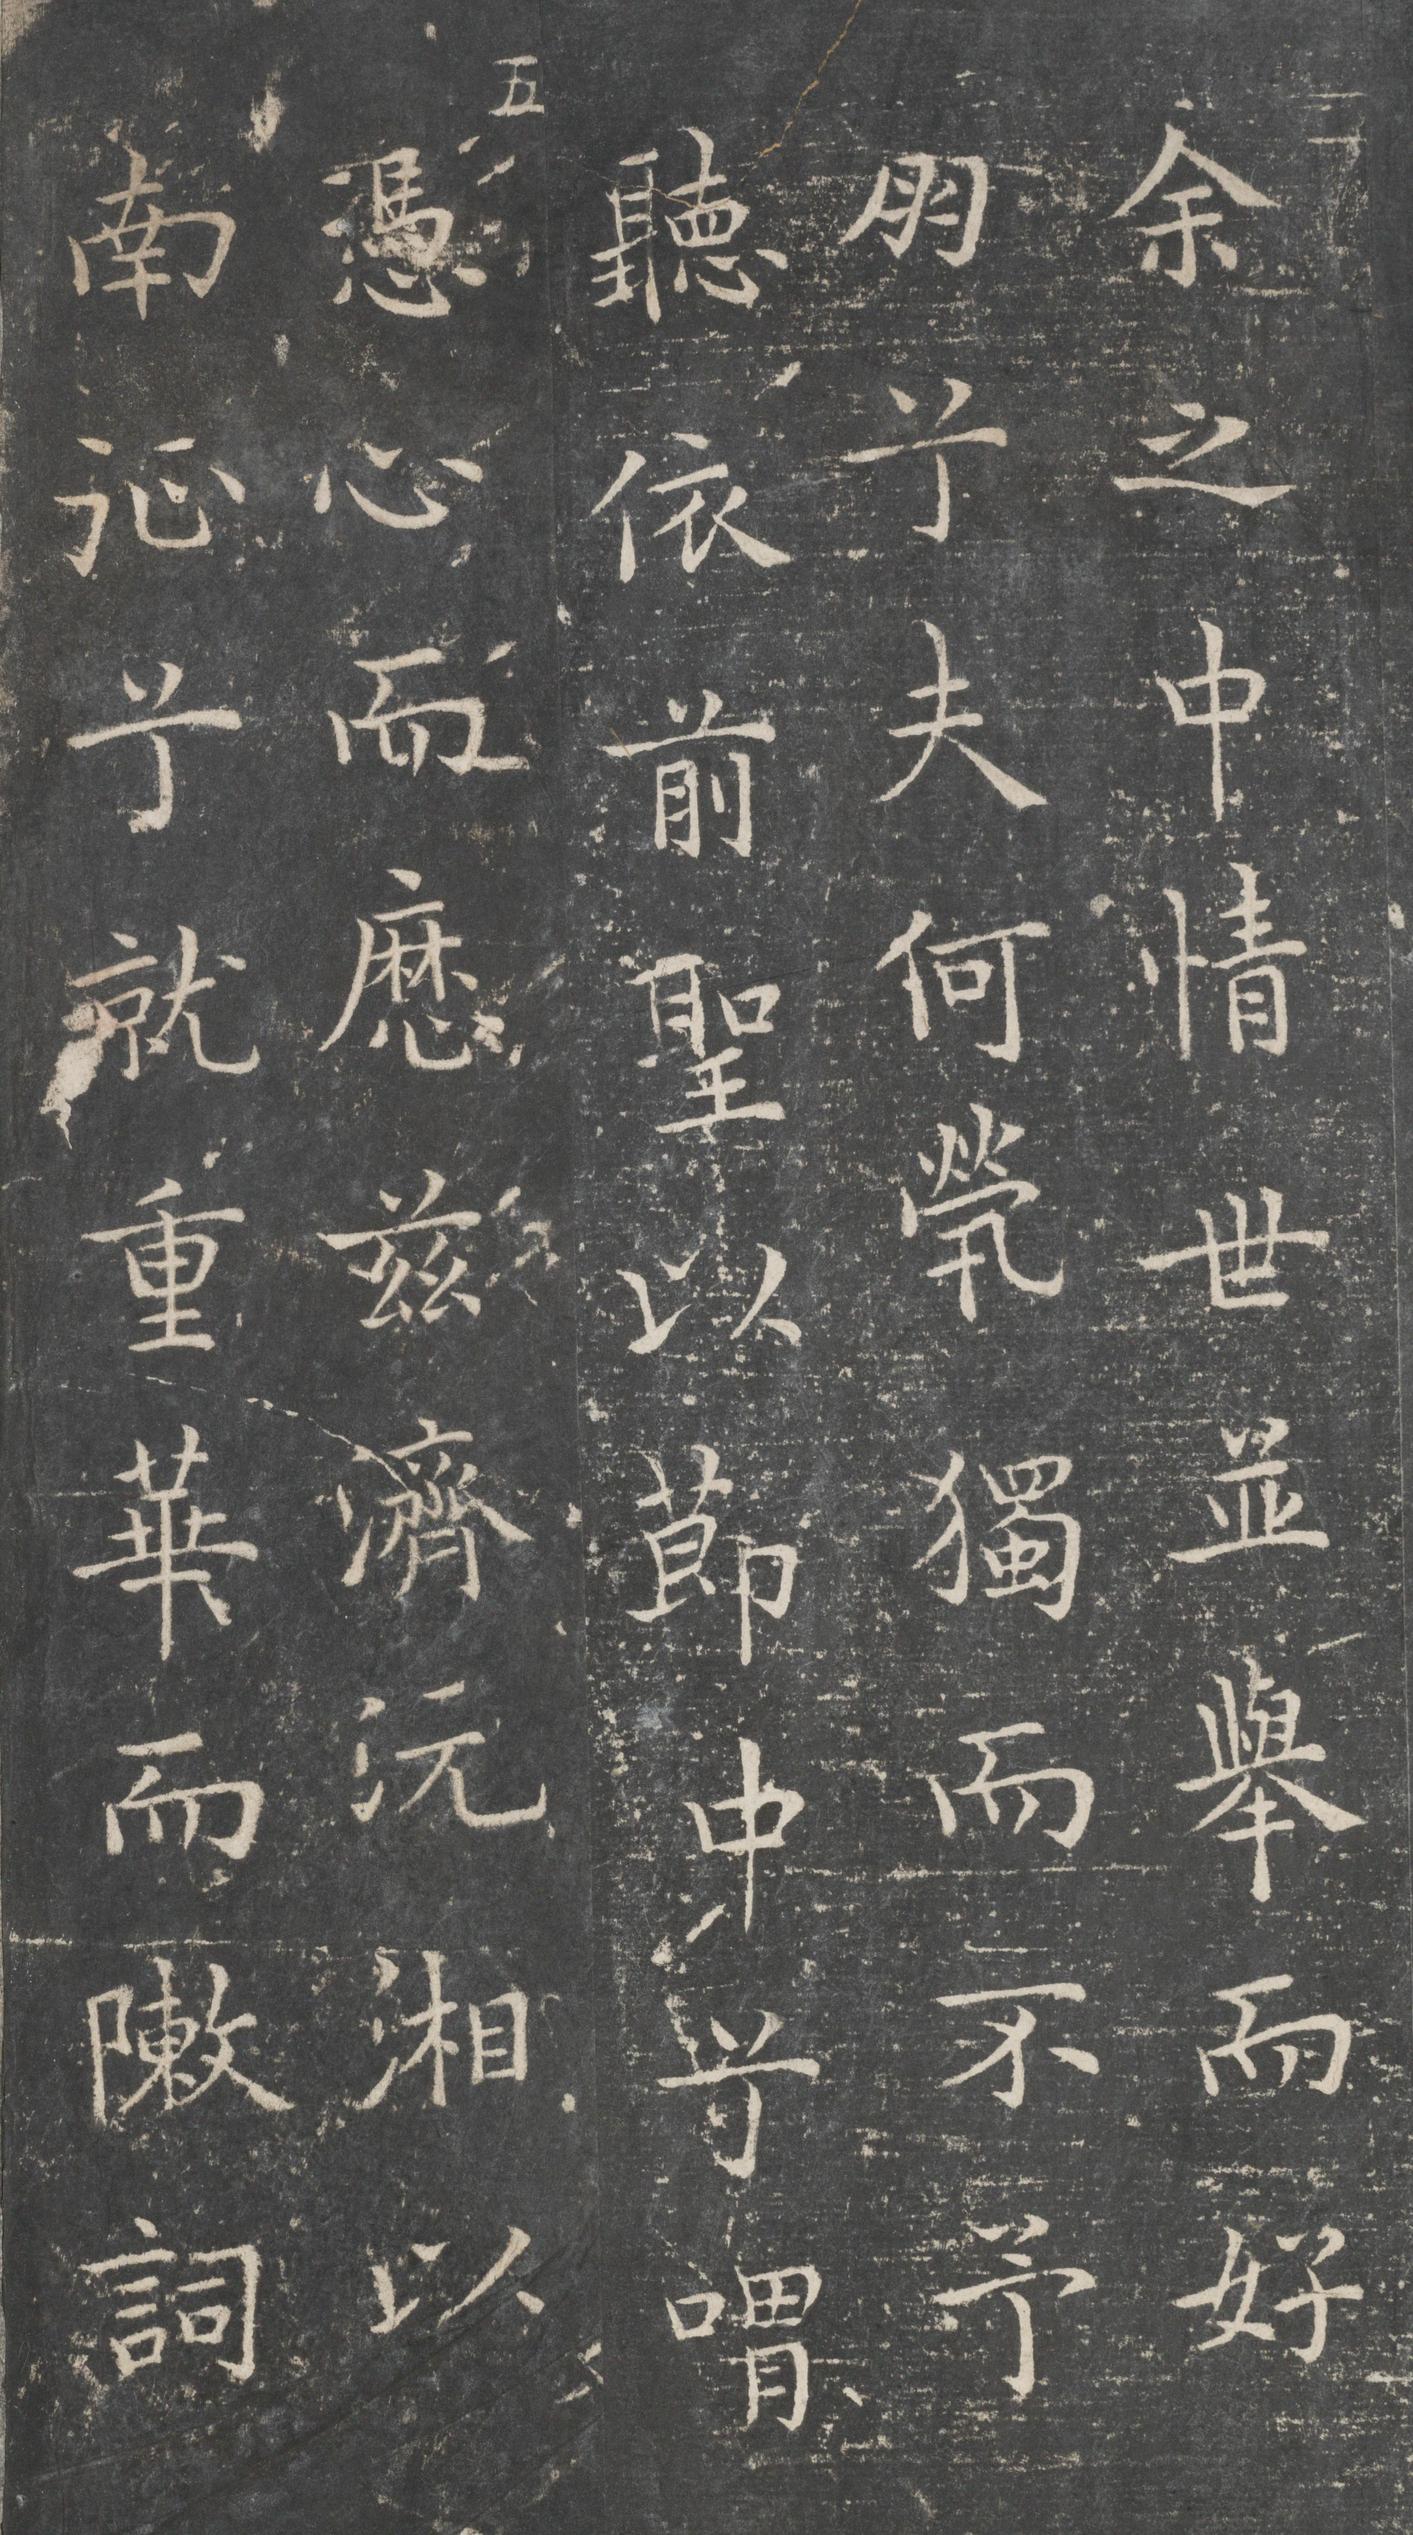 余之中情世並舉而好
朋兮夫何煢獨而不予
聽依前聖以節中兮喟
五
憑心而歷茲濟沅湘以
南征兮就重華而敶詞